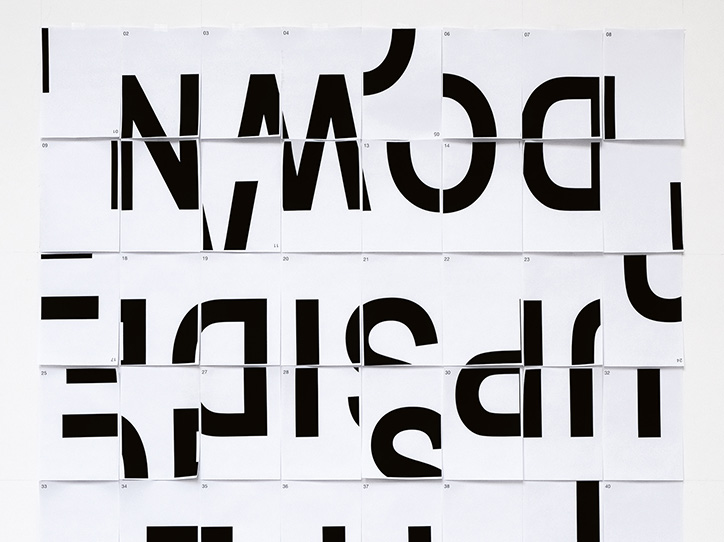 UPSIDE
DOWN
02 03 04 06 07 08
01 05
09 13 14
11
18 19 20 21 22 23
17 24
25 27 28 30 32
33 34 35 36 37 38 40